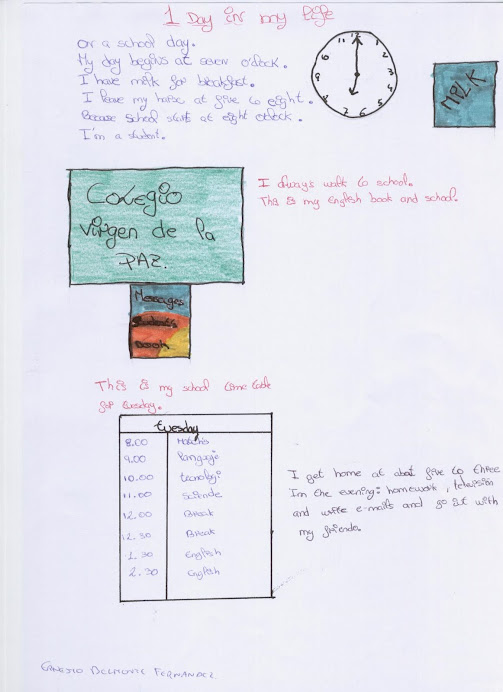 1 Day in my life
On a school day.
My day begins at seven o'clock.
I have milk for breakfast.
I leave my house at five to eight.
Because school starts at eight o'clock.
I'm a student.
12
1
2
3
4
5
6
7
8
9
10
11
MILK
I always walk to school.
This is my English book and school.
Colegio
Virgen de la
PAZ.
Messages
Student's
Book
This is my school time table
for tuesday.
tuesday
8.00 Maths
9.00 language
10.00 tecnologi
11.00 science
12.00 Break
12.30 Break
1.30 English
2.30 English
I get home at about five to three
I'm the evening: homework,
and write e-mails and go out with
my friends.
ERNESTO BELMONTE FERNANDEZ